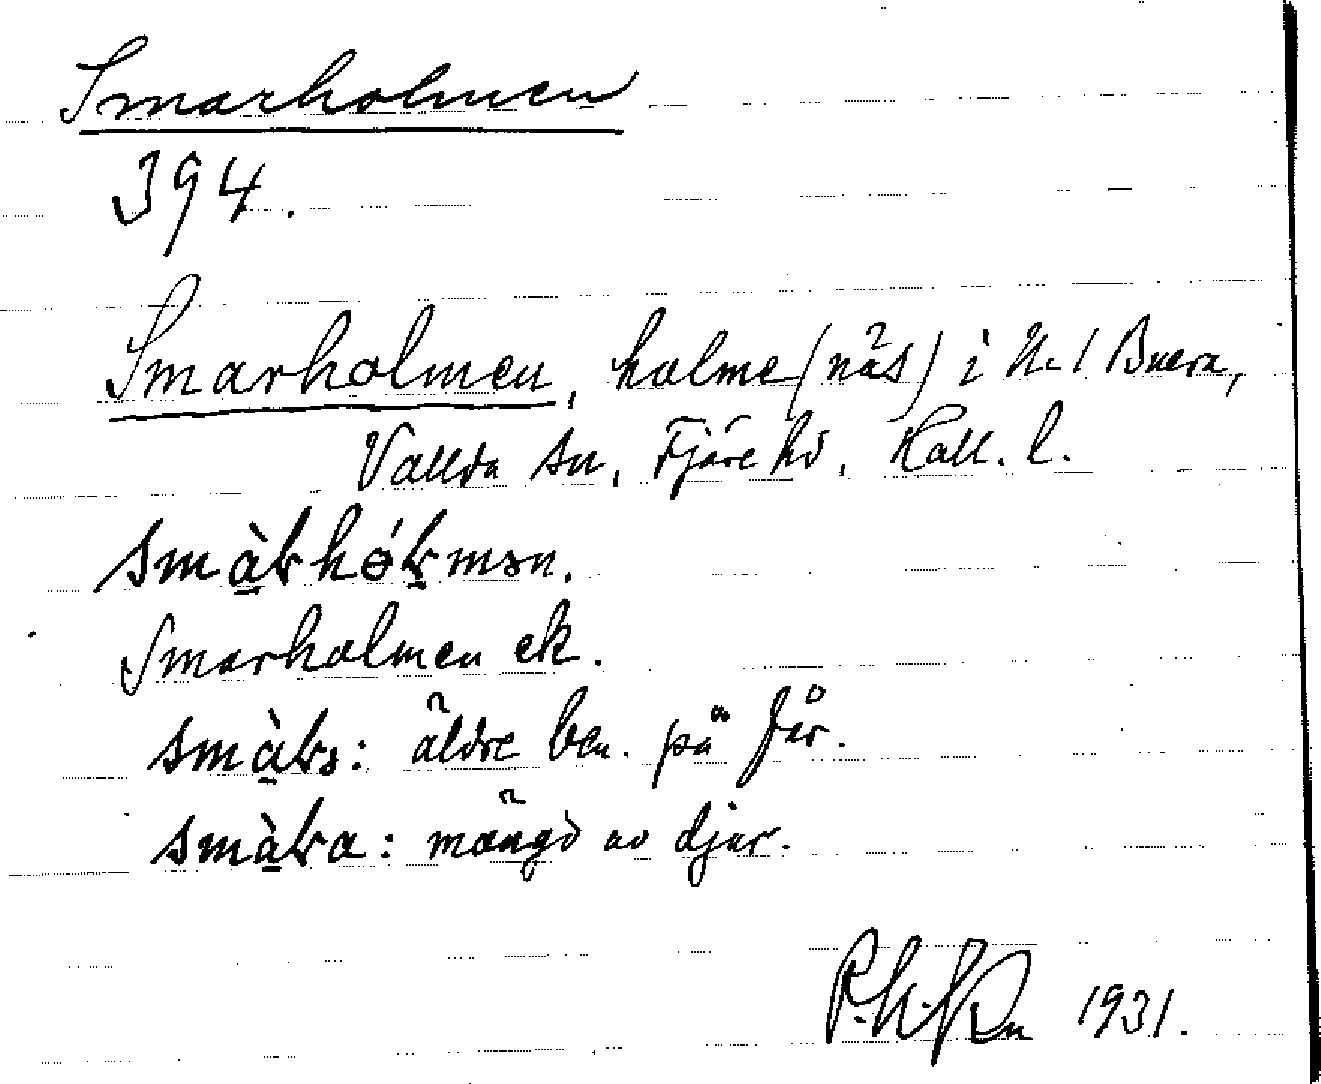 Smarholmen
394.
Smarholmen, holme (näs) i N. / Buera,
Vallda sn, Fjäre hd, Hall. l.
Smarholmen ek.
äldre ben. på får.
mängd av djur.
1931.